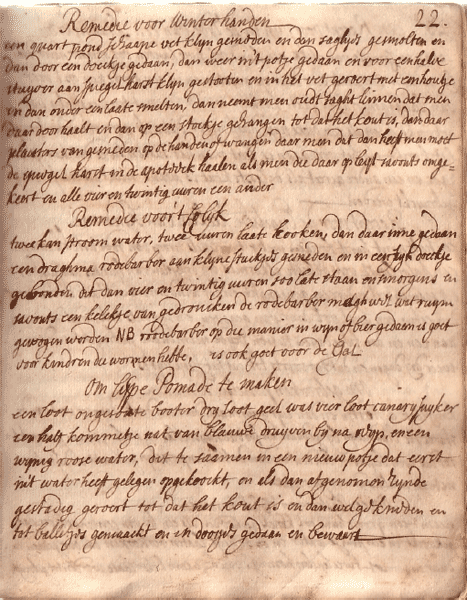 22.
Remedie voor Winterhanden
een quart pond schaape vet klyn gesneden en dan sagtjes gesmolten en
dan door een doeckje gedaan, dan weer int potje gedaan en voor een halve
stuyver aan spiegel harst klyn gestooten en in het vet geroert met een houtje
in dan onder een laate smelten, dan neemt men oudt saght linnen dat men
daar door haalt en dan op een stockje gehangen tot dat het kout is, dan daar
plaasters van gesneden op de handen of wangen daar men dat dan heeft men moet
de spiegel harst in de apoteeck haalen als men die daar op leyt savonts omge=
keert en alle vier en twintig uuren een ander
Remedie voor't
twee kan stroom water, twee uuren laate kooken, dan daar inne gedaan
een draghma rodebarber aan klyne stuckjes gesneden en in een doeckje
gebonden, dit dan vier en twintig uuren soo late staan en smorgens en
savonts een kelckje van gedroncken de rodebarber magh wel wat ruym
gewogen worden NB rodebarber op die manier in wyn of bier gedaan is goet
voor kindren die wormen hebbe, is ook goet voor de Gal
Om lippe Pomade te maken
een loot ongesoute booter dry loot geel was vier loot canary suyker
een half kommetje nat van blauwe druyven by na ryp, en een
wynig roose water, dit te saamen in een nieuw potje dat eerst
int water heeft gelegen opgekoockt, en als dan afgenomen zynde
gestadig geroert tot dat het kout is en dan wel gekneden en
tot balletjes gemaackt en in doosjes gedaan en bewaart